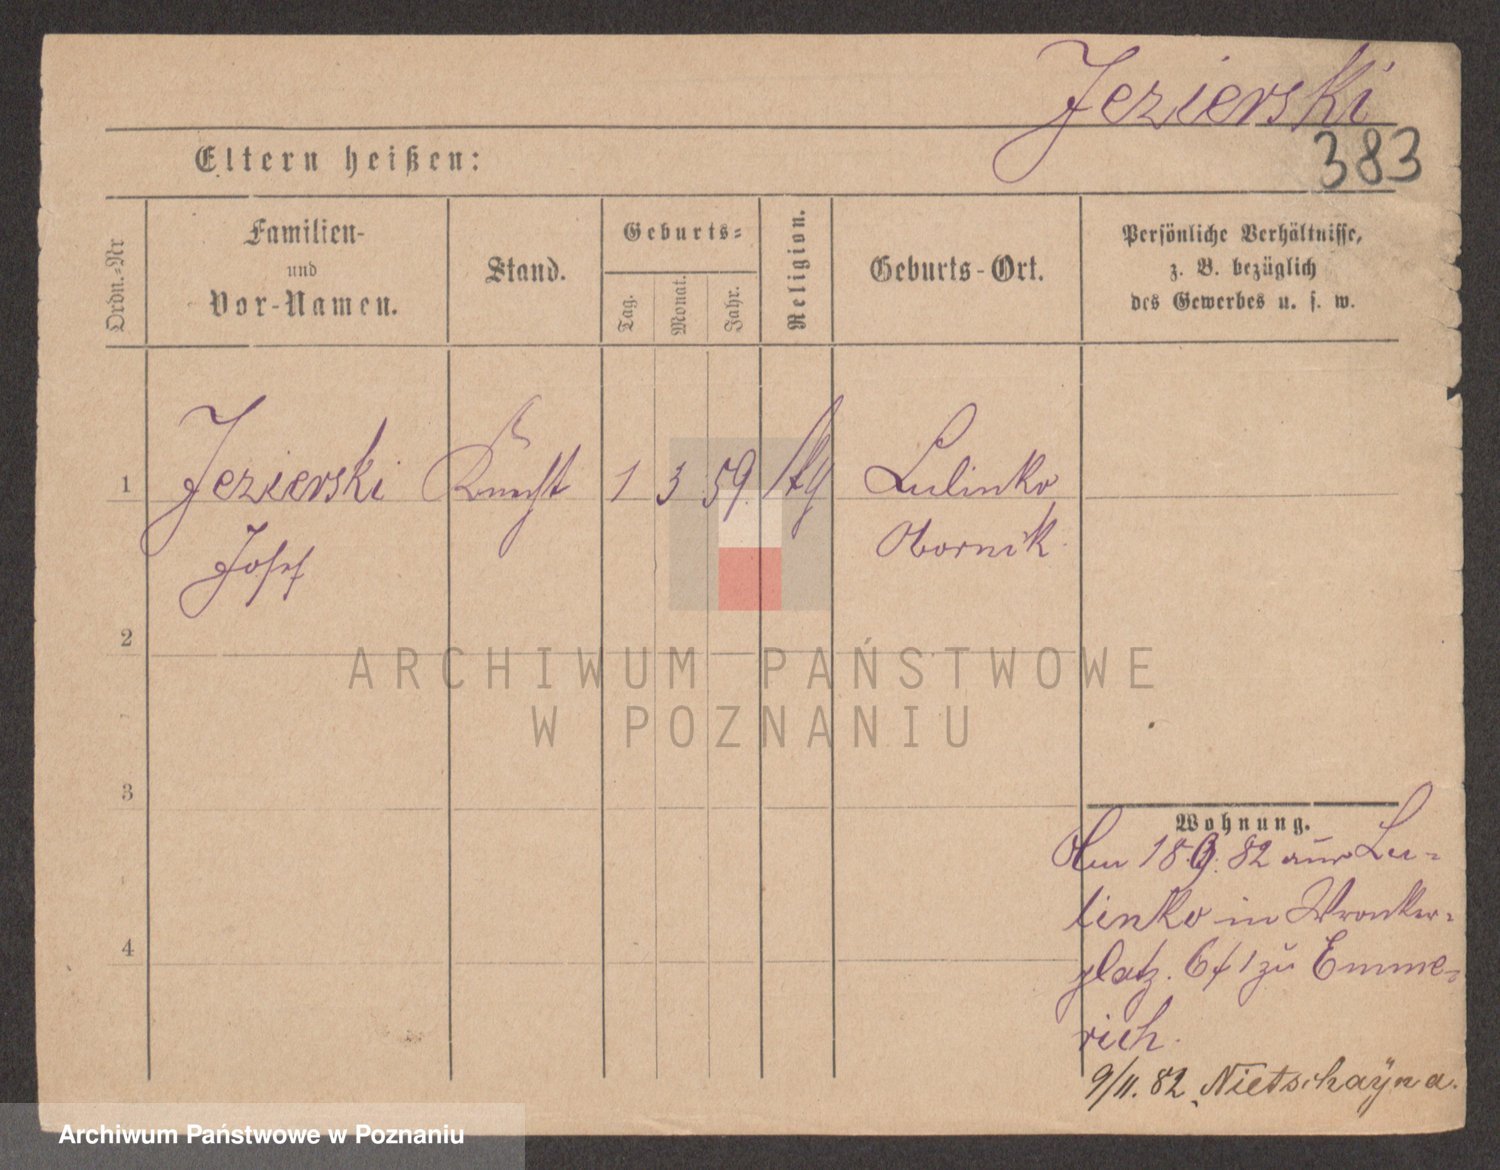 Jezierski
383
Eltern heißen:
Ordn.-Nr
Familien-
und
Vor-Namen.
Stand.
Geburts-
Tag.
Monat.
Jahr.
Religion.
Geburts-Ort.
Persönliche Verhältnisse,
z. B. bezüglich
des Gewerbes u. s. w.
1
Jezierski
Josef
Knecht
1
3
59.
Lulinko
Obornik
2
ARCHIWUM PAŃSTWOWE
W POZNANIU
3
4
Wohnung.
Am 82 aus Lu-
linko in Wronker-
platz. 6 zu Emme-
rich.
9/11. 82 Nietschayna.
Archiwum Państwowe w Poznaniu